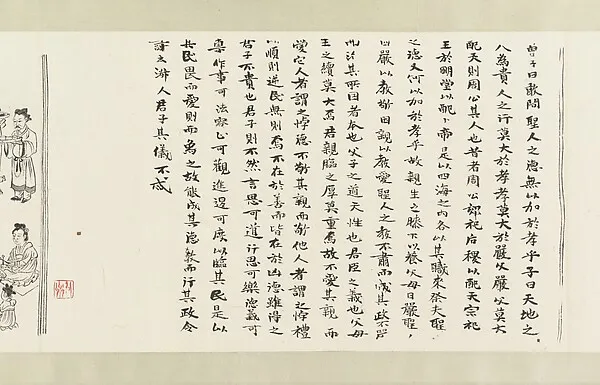 曾子曰敢問聖人之德無以加於孝乎子曰天地之
人為貴人之行莫大於孝孝莫大於嚴父嚴父莫大
配天則周公其人也昔者周公郊祀后稷以配天宗祀
王於明堂以配上帝是以四海之內各以其職來祭夫聖
之德又何以加於孝乎故親生之膝下以養父母日嚴聖
因嚴以教敬因親以教愛聖人之教不肅而成其政不嚴
而治其所因者本也父子之道天性也君臣之義也父母
生之續莫大焉君親臨之厚莫重焉故不愛其親而
愛它人者謂之悖德不敬其親而敬他人者謂之悖禮
以順則逆民無則焉不在於善而皆在於凶德雖得之
君子不貴也君子則不然言思可道行思可樂德義可
尊作事可法容止可觀進退可度以臨其民是以
其民畏而愛則而象之故能成其德教而行其政令
詩云淑人君子其儀不忒